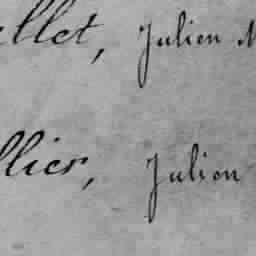 llet, Julien M
llier, Julien